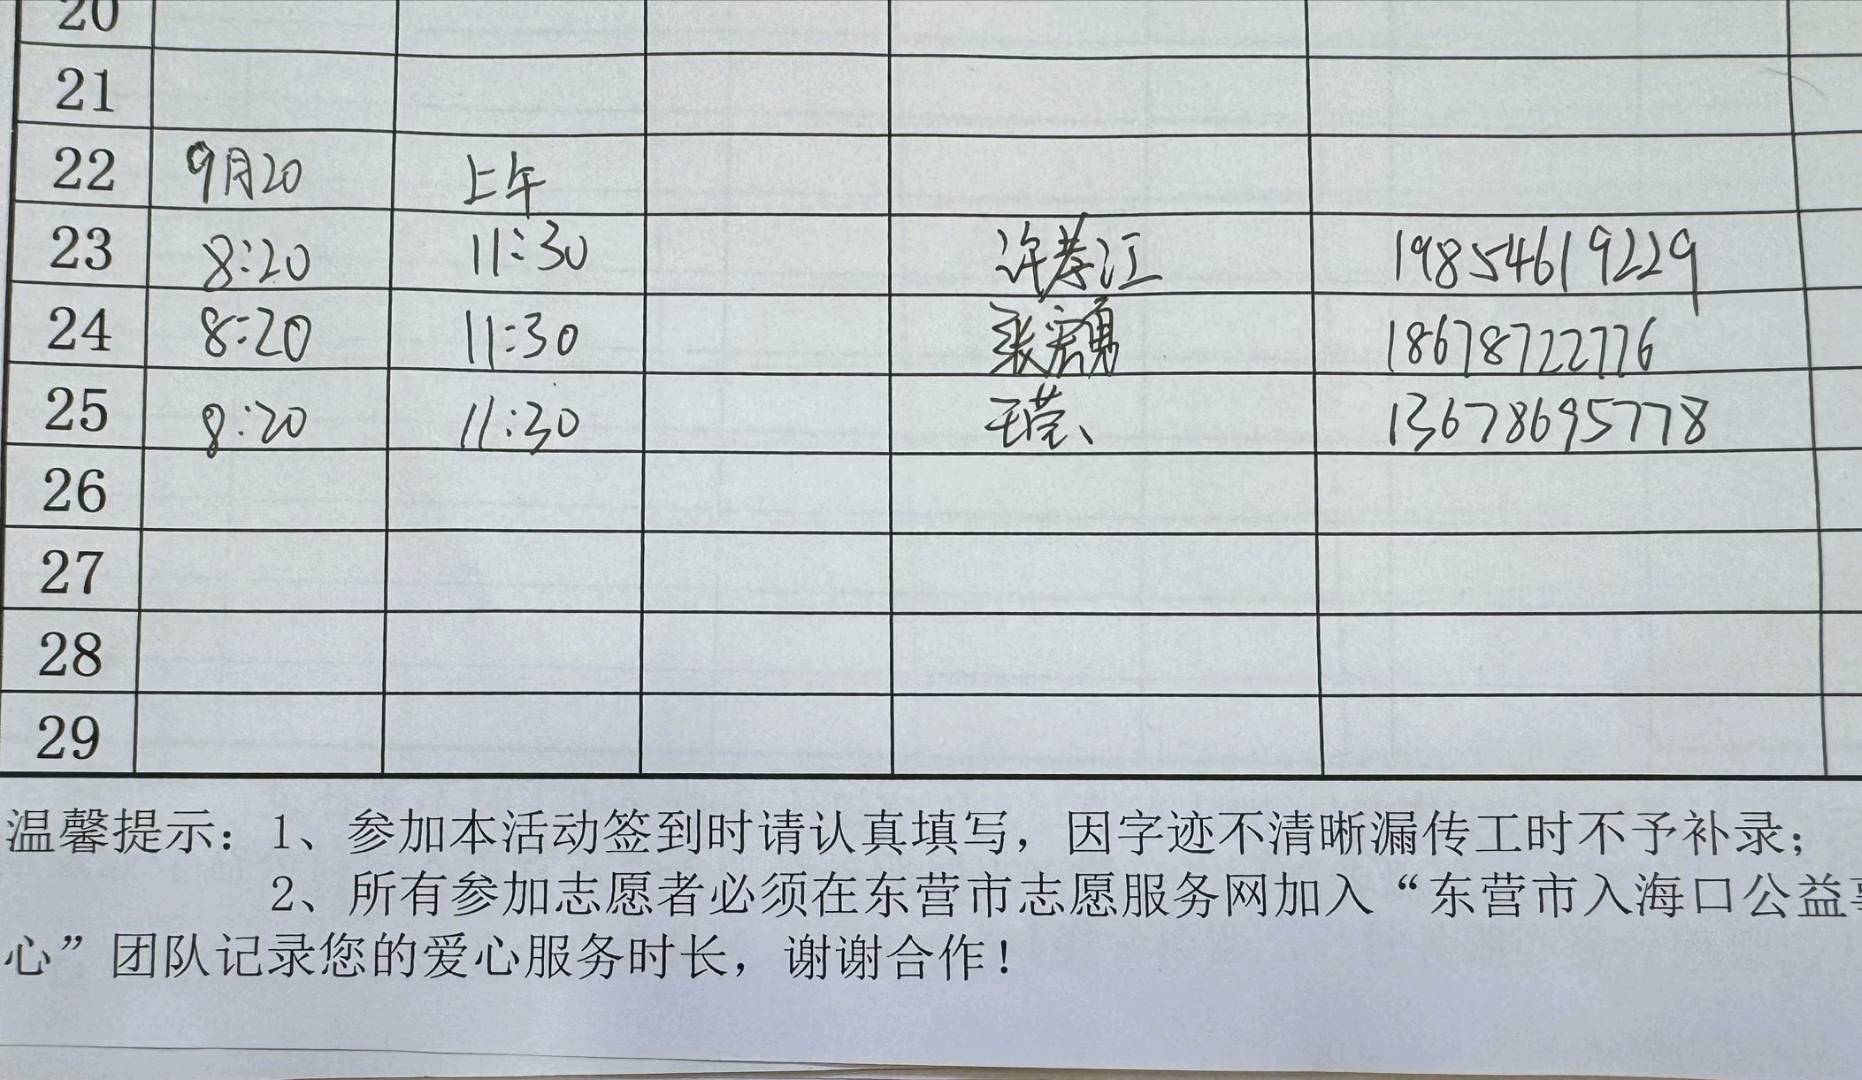 20
21
22 9月20 上午
23 8:20 11:30 许孝江 19854619229
24 8:20 11:30 张宏勇 18678722776
25 8:20 11:30 王莹、 13678695778
26
27
28
29
温馨提示：1、参加本活动签到时请认真填写，因字迹不清晰漏传工时不予补录；
2、所有参加志愿者必须在东营市志愿服务网加入“东营市入海口公益
心”团队记录您的爱心服务时长，谢谢合作！